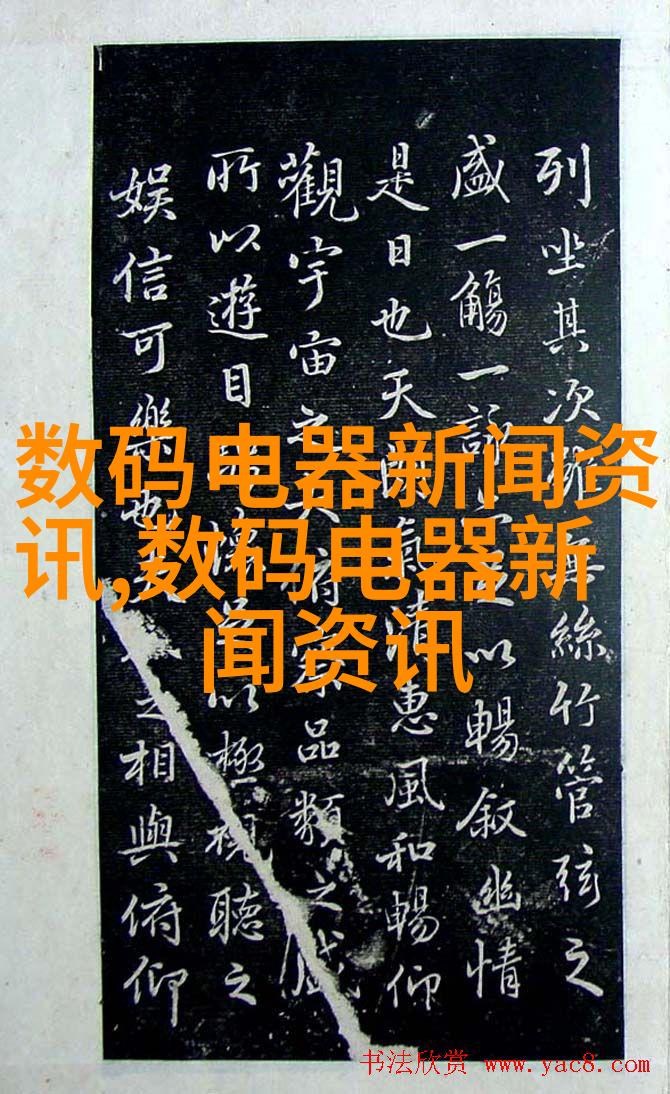 列坐其次雖無絲竹管弦之
盛一觴一詠亦足以暢叙幽情
是日也天朗氣清惠風和暢仰
觀宇宙之大俯察品類之盛
所以遊目騁懷足以極視聽之
娛信可樂也夫人之相與俯仰
数码电器新闻资
讯,数码电器新
闻资讯
书法欣赏 www.yac8.com